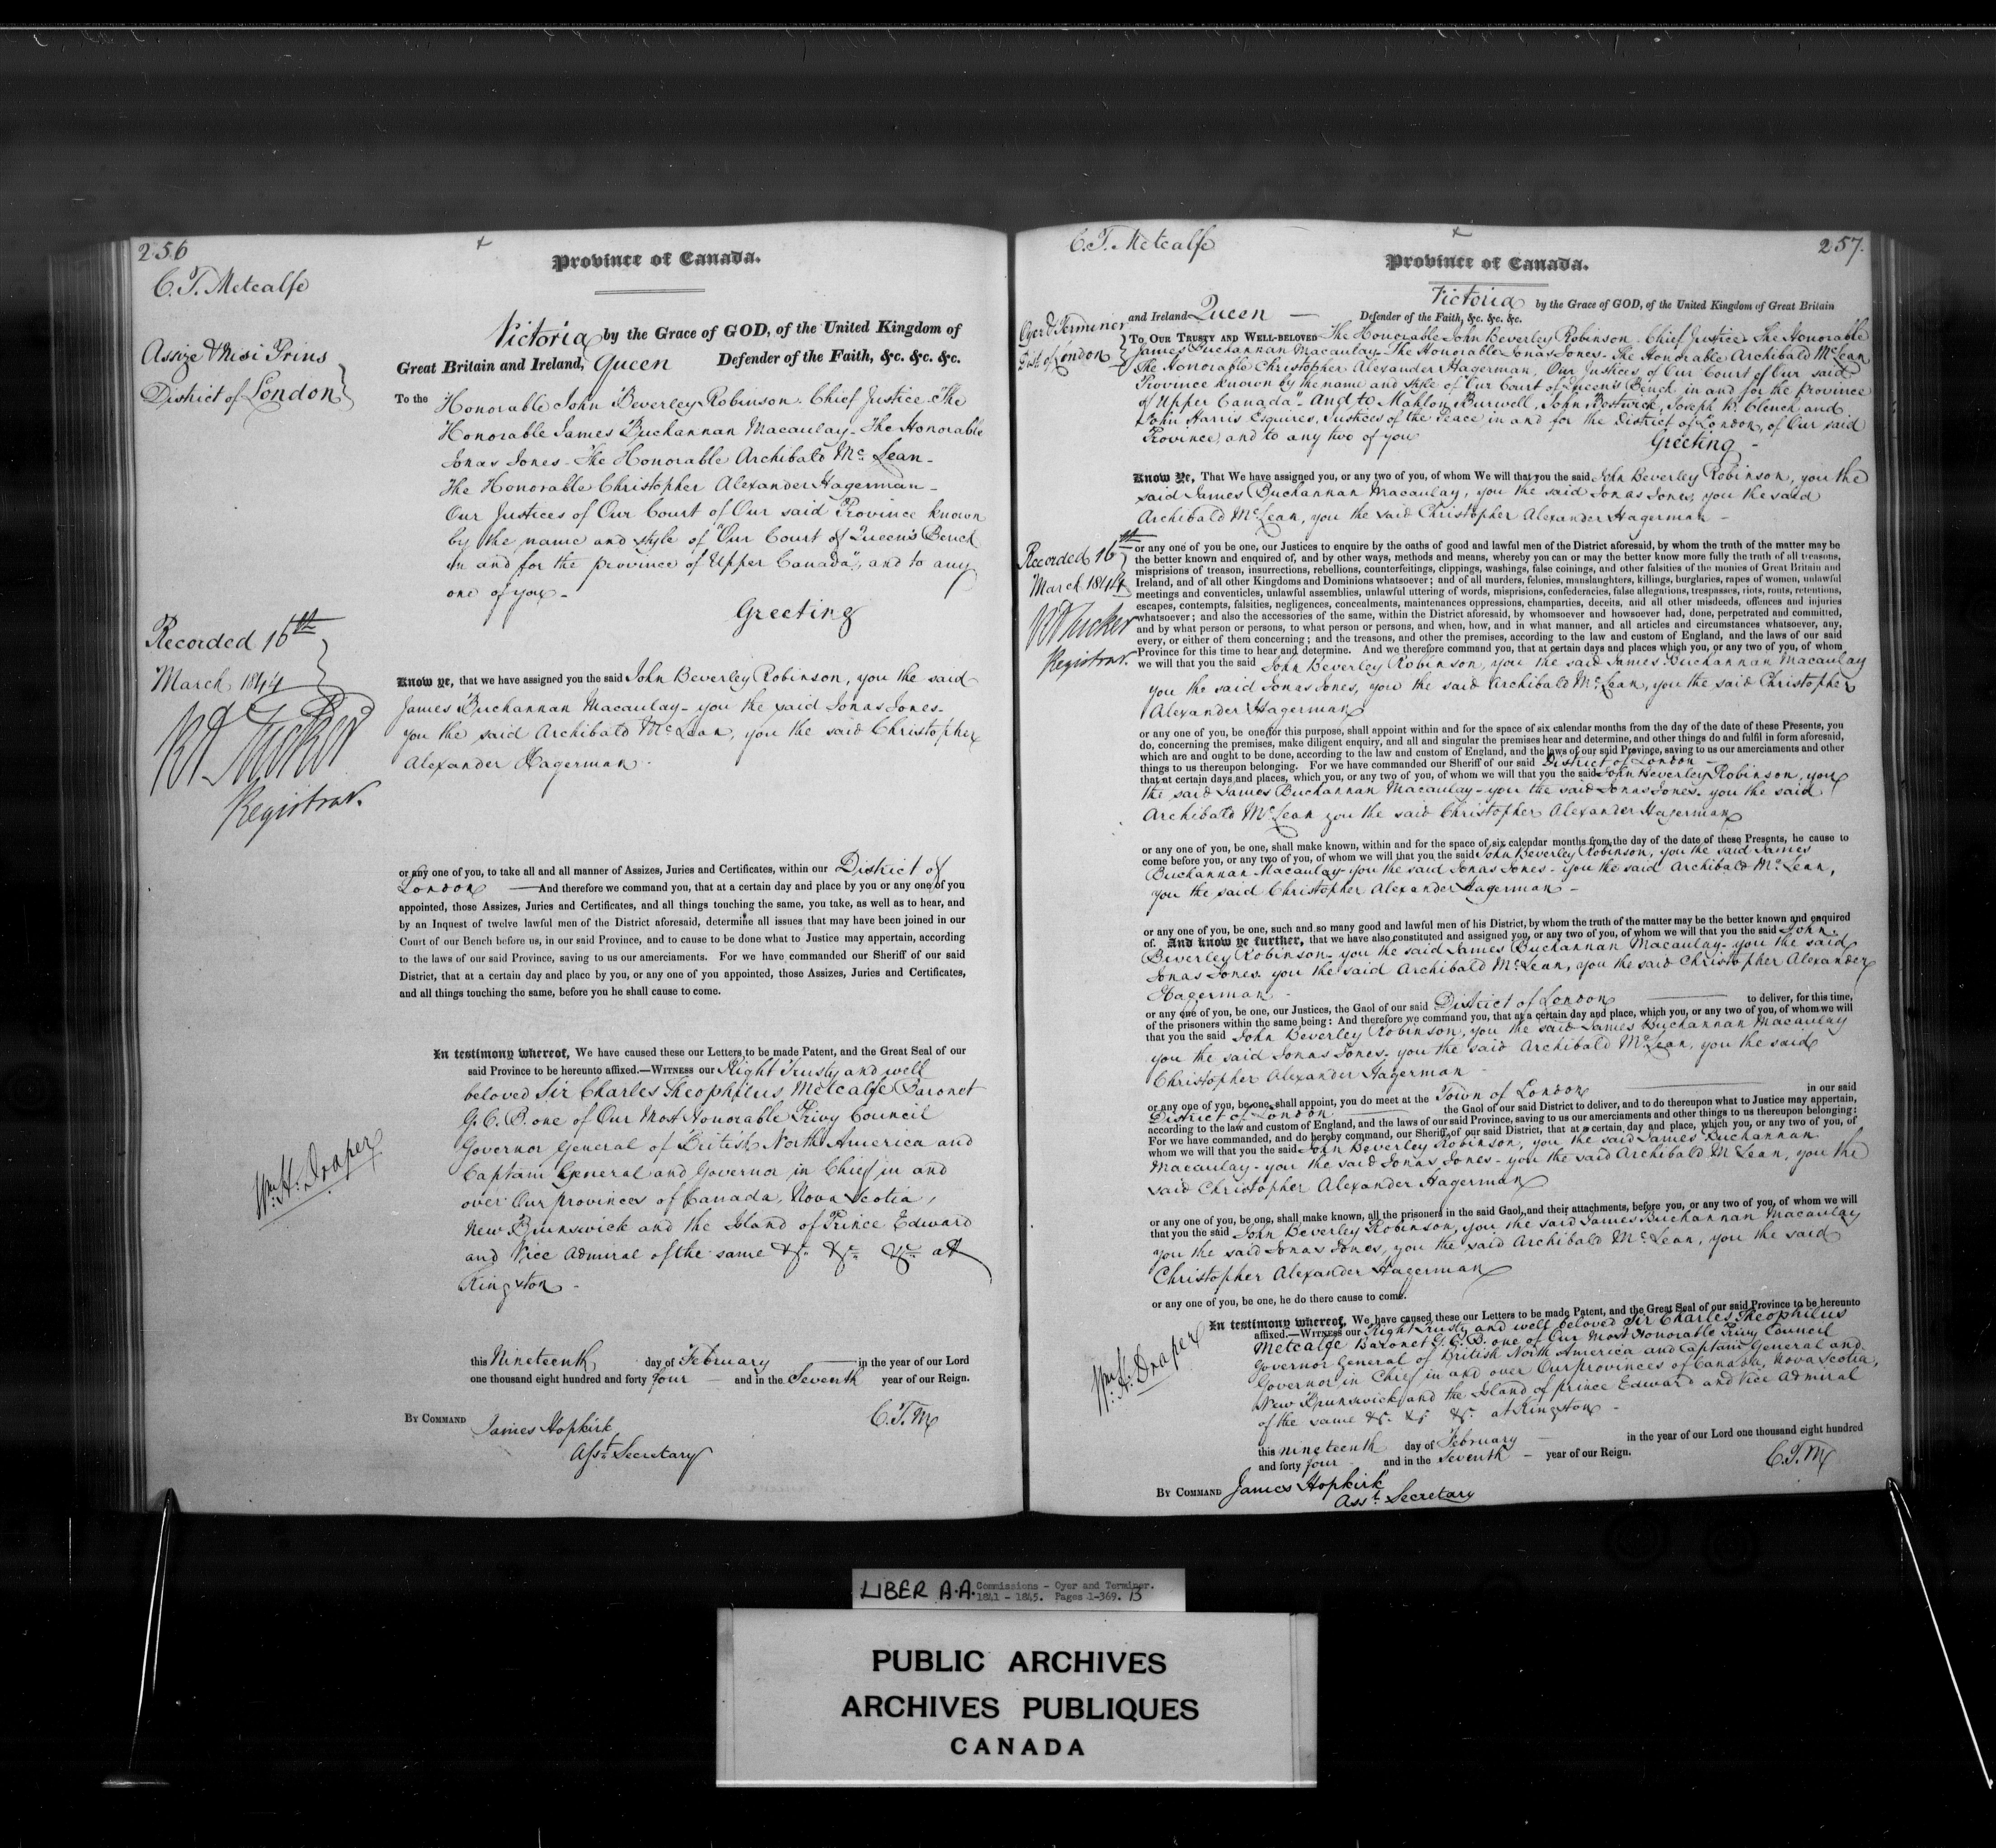 256
C. T. Metcalfe
Province of Canada.
Assize & Nisi Prius
District of London
Victoria by the Grace of GOD, of the United Kingdom of
Great Britain and Ireland, Queen Defender of the Faith, &c. &c. &c.
To the Honorable John Beverley Robinson. Chief Justice The
Honorable James Buchannan Macaulay - The Honorable
Jonas Jones - The Honorable Archibald Mc Lean -
The Honorable Christopher Alexander Hagerman -
Our Justices of Our Court of Our said Province known
by the name and style of "Our Court of Queen's Bench
in and for the province of Upper Canada", and to any
one of you -
Greeting
Recorded 16th
March 1844
R A Tucker
Registrar.
Know ye, that we have assigned you the said John Beverley Robinson, you the said
James Buchannan Macaulay - you the said Jonas Jones -
you the said Archibald McLean, you the said Christopher
Alexander Hagerman -
or any one of you, to take all and all manner of Assizes, Juries and Certificates, within our District of
London —And therefore we command you, that at a certain day and place by you or any one of you
appointed, those Assizes, Juries and Certificates, and all things touching the same, you take, as well as to hear, and
by an Inquest of twelve lawful men of the District aforesaid, determine all issues that may have been joined in our
Court of our Bench before us, in our said Province, and to cause to be done what to Justice may appertain, according
to the laws of our said Province, saving to us our amerciaments. For we have commanded our Sheriff of our said
District, that at a certain day and place by you, or any one of you appointed, those Assizes, Juries and Certificates,
and all things touching the same, before you he shall cause to come.
In testimony whereof, We have caused these our Letters to be made Patent, and the Great Seal of our
said Province to be hereunto affixed.—WITNESS our Right Trusty and well
beloved Sir Charles Theophilus Metcalfe Baronet
G.C.B. one of Our Most Honorable Privy Council
Governor General of British North America and
Captain General and Governor in Chief in and
over Our provinces of Canada, Nova Scotia,
New Brunswick and the Island of Prince Edward
and Vice Admiral of the same &c. &c. &c. at
Kingston -
Wm. H. Draper
this Nineteenth day of February — in the year of our Lord
one thousand eight hundred and forty four — and in the Seventh year of our Reign.
C.T.M
BY COMMAND James Hopkirk
Asst. Secretary
C. T. Metcalfe
257.
Province of Canada.
Victoria by the Grace of GOD, of the United Kingdom of Great Britain
and Ireland Queen — Defender of the Faith, &c. &c. &c.
Oyer & Terminer
Dist. of London
TO OUR TRUSTY AND WELL-BELOVED The Honorable John Beverley Robinson. Chief Justice. The Honorable
James Buchannan Macaulay - The Honorable Jonas Jones - The Honorable Archibald McLean
The Honorable Christopher Alexander Hagerman, Our Justices of Our Court of Our said
Province known by the name and style of "Our Court of Queen's Bench in and for the province
of Upper Canada" - And to Mahlon Burwell, John Bostwick, Joseph B. Clench and
John Harris Esquires, Justices of the Peace in and for the District of London, of Our said
Province, and to any two of you
Greeting -
Know Ye, That We have assigned you, or any two of you, of whom We will that you the said John Beverley Robinson, you the
said James Buchannan Macaulay, you the said Jonas Jones, you the said
Archibald McLean, you the said Christopher Alexander Hagerman -
Recorded 16th
March 1844
R A Tucker
Registrar.
or any one of you be one, our Justices to enquire by the oaths of good and lawful men of the District aforesaid, by whom the truth of the matter may be
the better known and enquired of, and by other ways, methods and means, whereby you can or may the better know more fully the truth of all treasons,
misprisions of treason, insurrections, rebellions, counterfeitings, clippings, washings, false coinings, and other falsities of the monies of Great Britain and
Ireland, and of all other Kingdoms and Dominions whatsoever; and of all murders, felonies, manslaughters, killings, burglaries, rapes of women, unlawful
meetings and conventicles, unlawful assemblies, unlawful uttering of words, misprisions, confederacies, false allegations, trespasses, riots, routs, retentions,
escapes, contempts, falsities, negligences, concealments, maintenances oppressions, champarties, deceits, and all other misdeeds, offences and injuries
whatsoever; and also the accessories of the same, within the District aforesaid, by whomsoever and howsoever had, done, perpetrated and committed,
and by what person or persons, to what person or persons, and when, how, and in what manner, and all articles and circumstances whatsoever, any,
every, or either of them concerning; and the treasons, and other the premises, according to the law and custom of England, and the laws of our said
Province for this time to hear and determine. And we therefore command you, that at certain days and places which you, or any two of you, of whom
we will that you the said John Beverley Robinson, you the said James Buchannan Macaulay
you the said Jonas Jones, you the said Archibald McLean, you the said Christopher
Alexander Hagerman
or any one of you, be one for this purpose, shall appoint within and for the space of six calendar months from the day of the date of these Presents, you
do, concerning the premises, make diligent enquiry, and all and singular the premises hear and determine, and other things do and fulfil in form aforesaid,
which are and ought to be done, according to the law and custom of England, and the laws of our said Province, saving to us our amerciaments and other
things to us thereupon belonging. For we have commanded our Sheriff of our said District of London -
that at certain days and places, which you, or any two of you, of whom we will that you the said John Beverley Robinson, you
the said James Buchannan Macaulay - you the said Jonas Jones. you the said
Archibald McLean you the said Christopher Alexander Hagerman
or any one of you, be one, shall make known, within and for the space of six calendar months from the day of the date of these Presents, he cause to
come before you, or any two of you, of whom we will that you the said John Beverley Robinson, you the said James
Buchannan Macaulay - you the said Jonas Jones - you the said Archibald McLean,
you the said Christopher Alexander Hagerman -
or any one of you, be one, such and so many good and lawful men of his District, by whom the truth of the matter may be the better known and enquired
of. And know ye further, that we have also constituted and assigned you, or any two of you, of whom we will that you the said John
Beverley Robinson - you the said James Buchannan Macaulay - you the said
Jonas Jones. you the said Archibald McLean, you the said Christopher Alexander
Hagerman -
or any one of you, be one, our Justices, the Gaol of our said District of London — to deliver, for this time,
of the prisoners within the same being: And therefore we command you, that at a certain day and place, which you, or any two of you, of whom we will
that you the said John Beverley Robinson, you the said James Buchannan Macaulay
you the said Jonas Jones. you the said Archibald McLean, you the said
Christopher Alexander Hagerman -
or any one of you, be one, shall appoint, you do meet at the Town of London — in our said
District of London — the Gaol of our said District to deliver, and to do thereupon what to Justice may appertain,
according to the law and custom of England, and the laws of our said Province, saving to us our amerciaments and other things to us thereupon belonging:
For we have commanded, and do hereby command, our Sheriff of our said District, that at a certain day and place, which you, or any two of you, of
whom we will that you the said John Beverley Robinson, you the said James Buchannan
Macaulay - you the said Jonas Jones - you the said Archibald McLean, you the
said Christopher Alexander Hagerman
or any one of you, be one, shall make known, all the prisoners in the said Gaol, and their attachments, before you, or any two of you, of whom we will
that you the said John Beverley Robinson, you the said James Buchannan Macaulay
you the said Jonas Jones, you the said Archibald McLean, you the said
Christopher Alexander Hagerman
or any one of you, be one, he do there cause to come.
In testimony whereof, We have caused these our Letters to be made Patent, and the Great Seal of our said Province to be hereunto
affixed.—WITNESS our Right Trusty and well beloved Sir Charles Theophilus
Metcalfe Baronet G.C.B. one of Our Most Honorable Privy Council
Governor General of British North America and Captain General and
Governor in Chief in and over Our provinces of Canada, Nova Scotia,
New Brunswick and the Island of prince Edward and Vice Admiral
of the same &c. &c. &c. at Kingston -
Wm. H. Draper
this nineteenth day of February — in the year of our Lord one thousand eight hundred
and forty four and in the Seventh — year of our Reign.
C.T.M
BY COMMAND James Hopkirk
Asst. Secretary
LIBER A.A. Commissions - Oyer and Terminer.
1841 - 1845. Pages 1-369. 13
PUBLIC ARCHIVES
ARCHIVES PUBLIQUES
CANADA